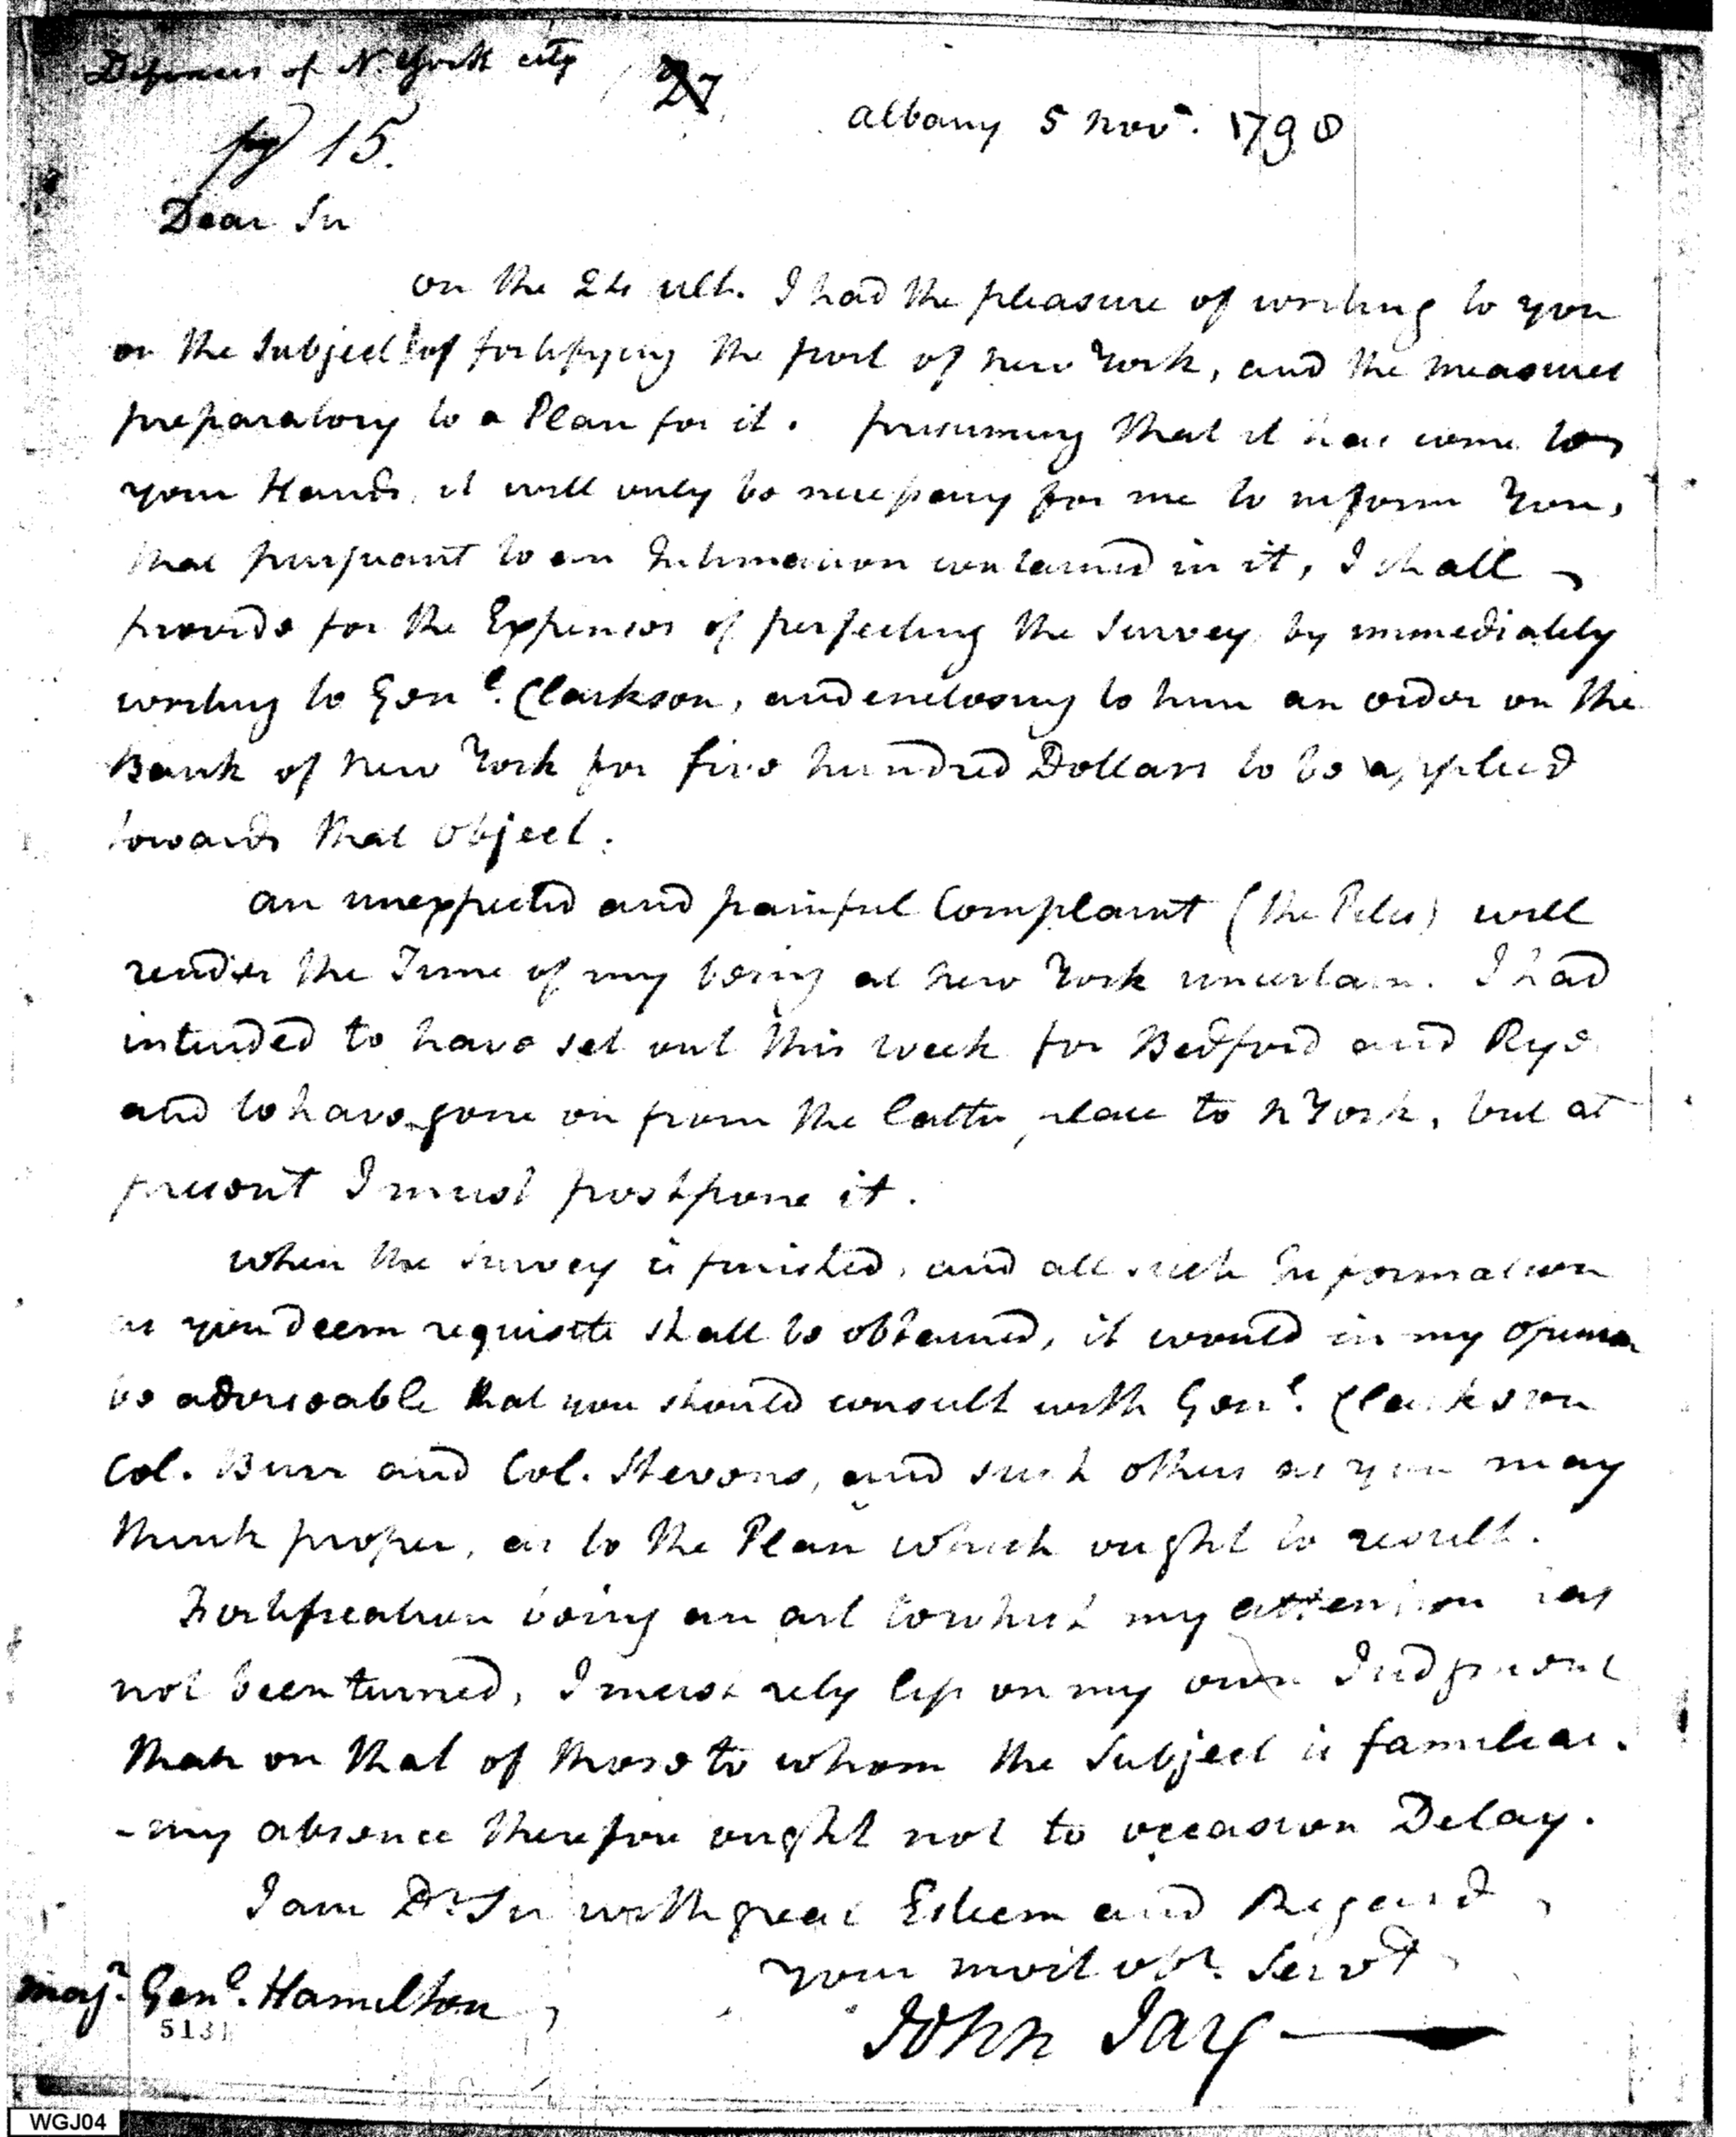 Defences of N. York city 27
pg 15.
Albany 5 Novr. 1798
Dear Sir
on the 24 ult. I had the pleasure of writing to you
on the Subject of fortifying the port of new York, and the measures
preparatory to a Plan for it. presuming that it has come to
your Hands, it will only be necessary for me to inform You,
that pursuant to an Intimation contained in it, I shall
provide for the Expenses of perfecting the Survey by immediately
writing to Genl. Clarkson, and enclosing to him an order on the
Bank of New York for five hundred Dollars to be applied
towards that object.
an unexpected and painful Complaint (the Piles) will
render the Time of my being at New York uncertain. I had
intended to have set out this week for Bedford and Rye
and to have gone on from the latter place to N York, but at
present I must postpone it.
when the Survey is finished, and all such Information
as you deem requisite shall be obtained, it would in my opinion
be adviseable that you should consult with Genl. Clarkson
Col. Burr and Col. Stevens, and such others as you may
think proper, as to the Plan which ought to result.
Fortification being an art to which my attention has
not been turned, I must rely less on my own Judgment
than on that of those to whom the Subject is familiar.
- my absence therefore ought not to occasion Delay.
I am Dr. Sir with great Esteem and Regard
your most obt. Servt
Majr. Genl. Hamilton
John Jay
5131
WGJ04